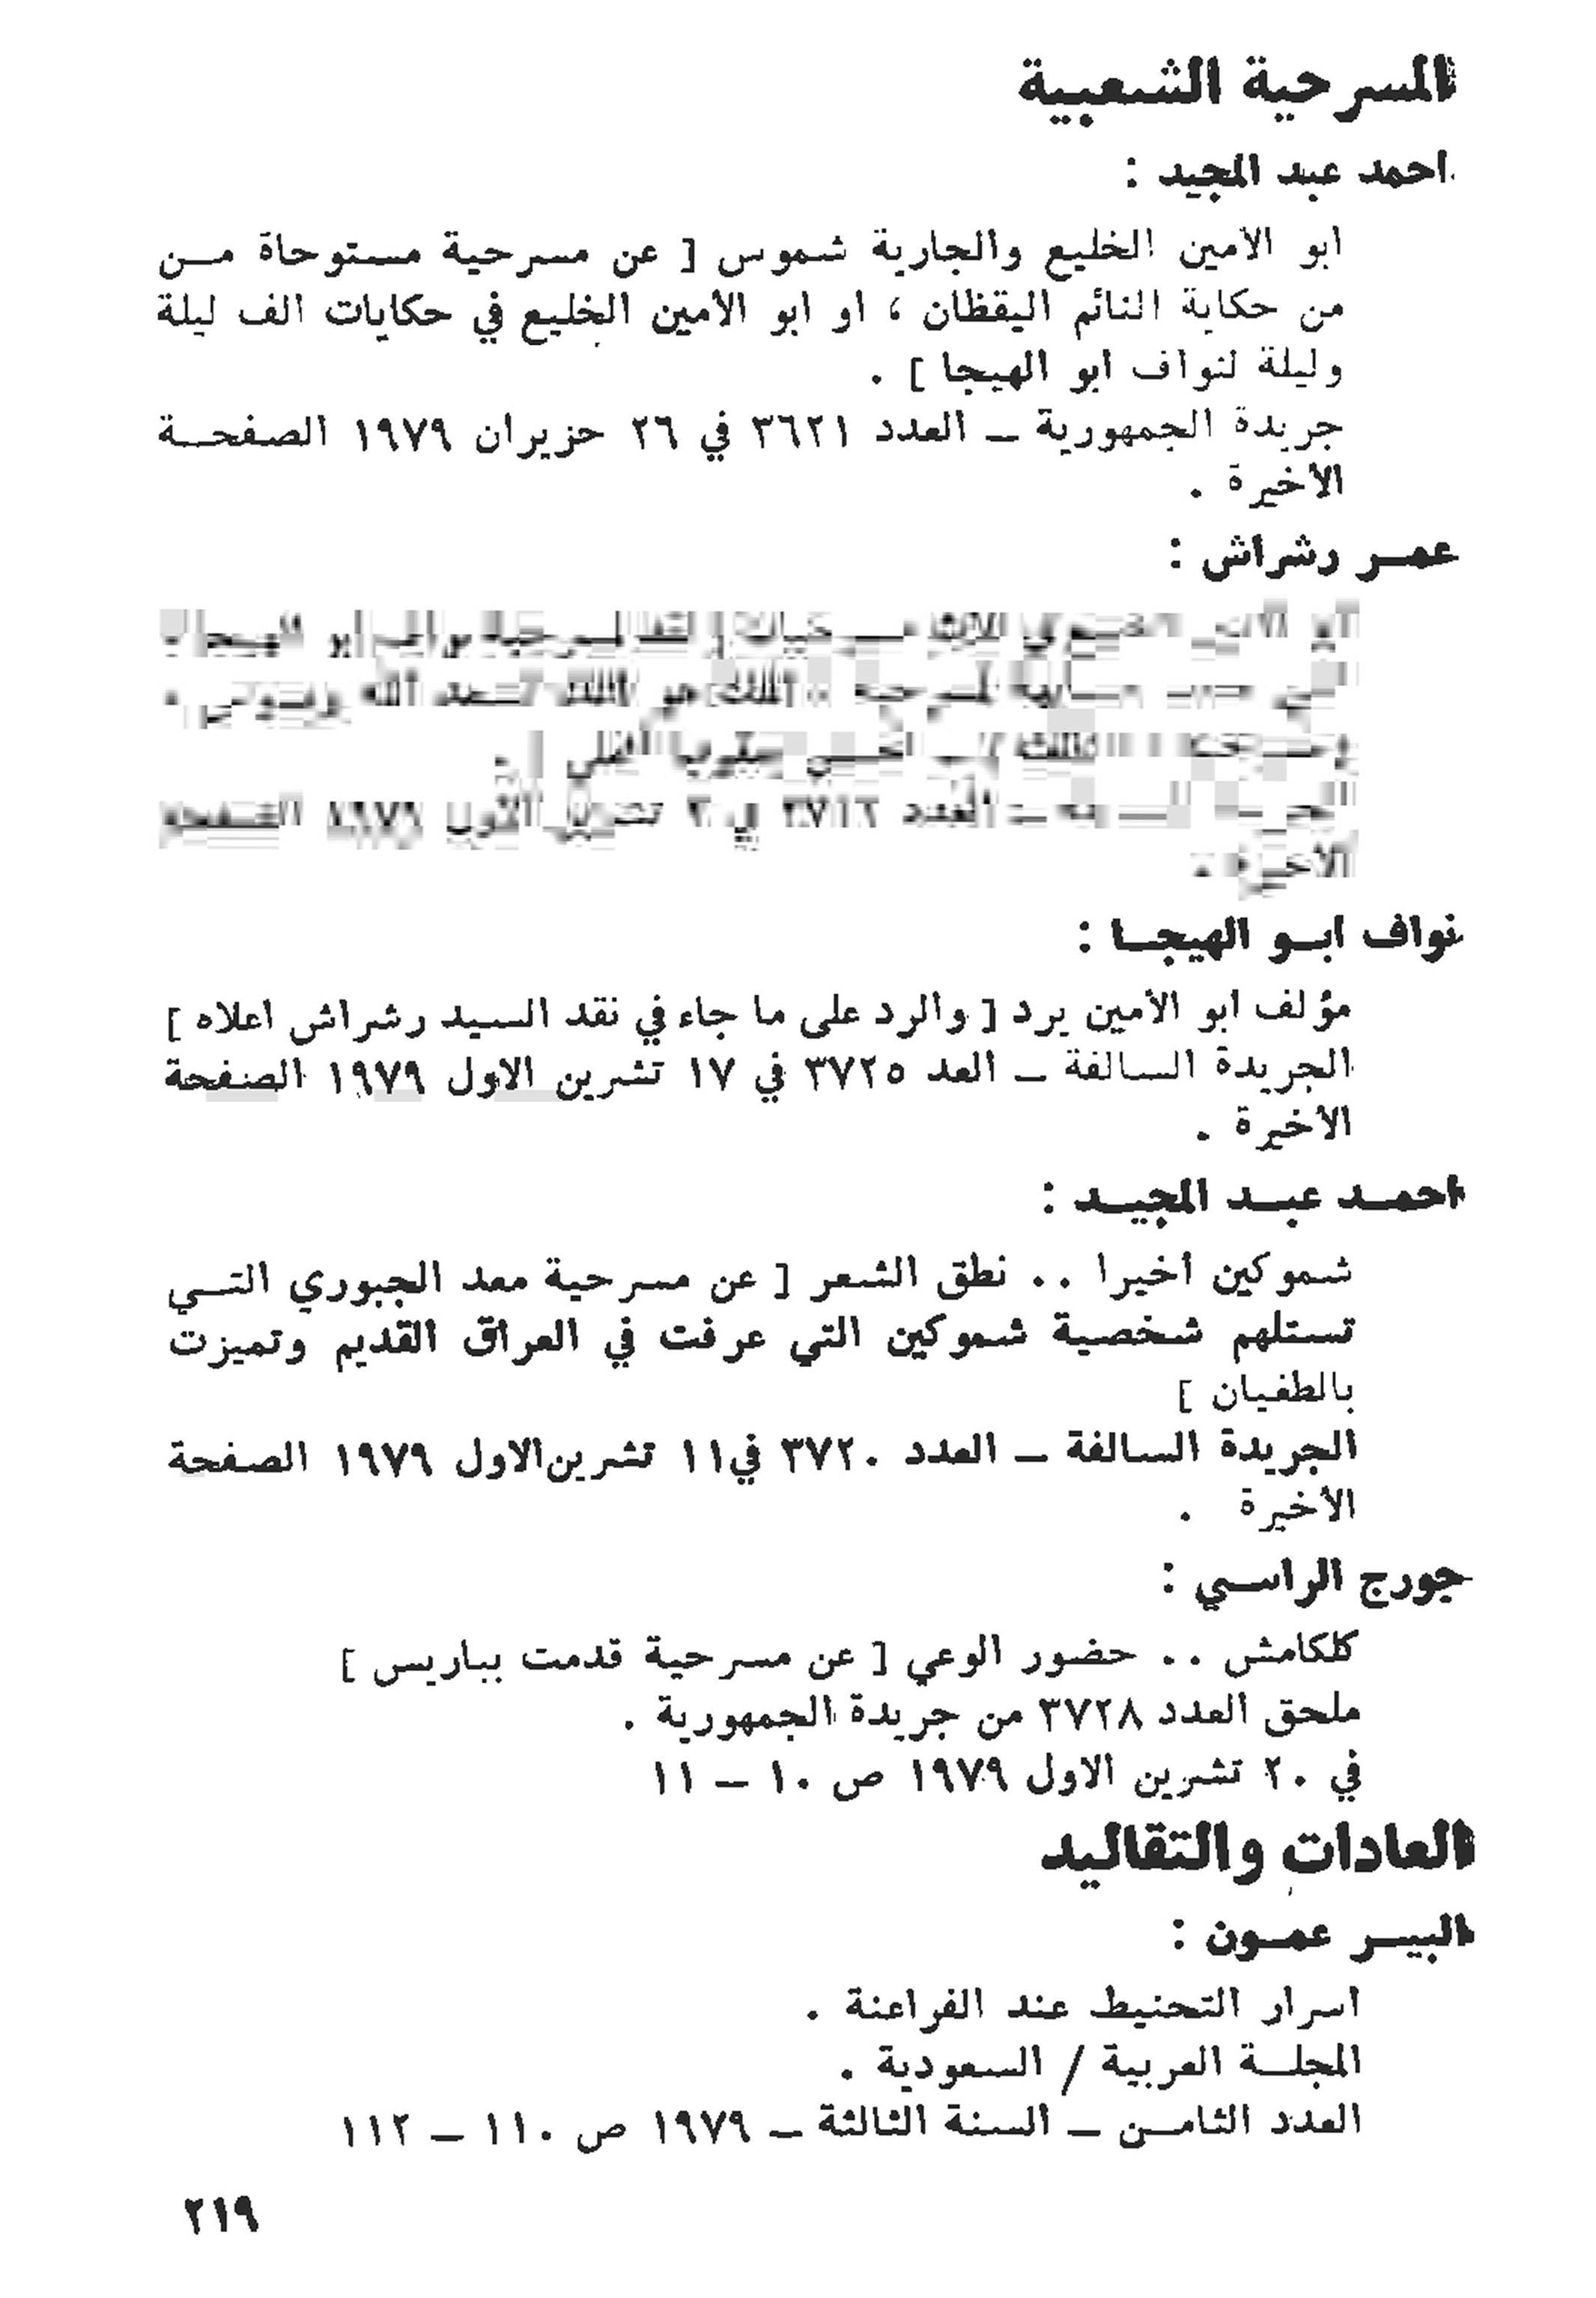 المسرحية الشعبية
احمد عبد المجيد :
ابو الامين الخليع والجارية شموس [ عن مسرحية مستوحاة مـن
من حكاية النائم اليقظان ، او ابو الأمين الخليع في حكايات الف ليلة
وليلة لنواف ابو الهيجا ] .
جريدة الجمهورية ــ العدد ٣٦٢١ في ٢٦ حزيران ١٩٧٩ الصفحـة
الأخيرة .
عمـر رشراش :
نواف ابـو الهيجـا :
مؤلف ابو الأمين يرد [ والرد على ما جاء في نقد السيد رشراش اعلاه ]
الجريدة السالفة ــ العد ٣٧٢٥ في ١٧ تشرين الاول ١٩٧٩ الصفحة
الاخيرة .
احمـد عبـد المجيـد :
شموكين أخيرا . . نطق الشعر [ عن مسرحية معد الجبوري التـي
تستلهم شخصية شموكين التي عرفت في العراق القديم وتميزت
بالطفيان ]
الجريدة السالفة ــ العدد ٣٧٢٠ في١١ تشرين الاول ١٩٧٩ الصفحة
الأخيرة .
جورج الراسـي :
كلكامش . . حضور الوعي [ عن مسرحية قدمت بباريس ]
ملحق العدد ٣٧٢٨ من جريدة الجمهورية .
في ٢٠ تشرين الاول ١٩٧٩ ص ١٠ ــ ١١
العادات والتقاليد
البيـر عمـون :
اسرار التحنيط عند الفراعنة .
المجلـة العربية / السعودية .
العدد الثامـن ــ السنة الثالثة ــ ١٩٧٩ ص ١١٠ ــ ١١٢
٢١٩